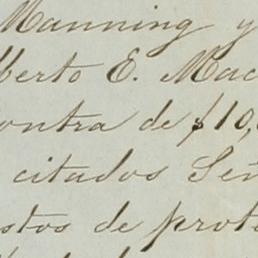 Manning y
lberto E. Mac
ontra de $10,
citados Señ
stos de prote